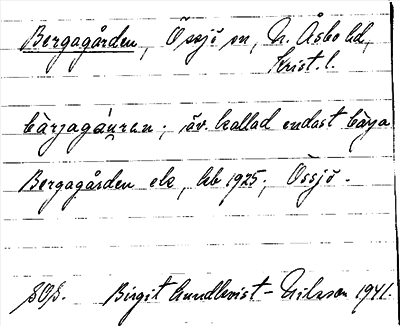 Bergagården, Össjö sn, N. Åsbo hd,
Krist. l.
bärjagáu̯ran; äv. kallad endast bärja
Bergagården ek, kb 1925; Össjö.
Birgit Lundkvist-Nilsson 1941.